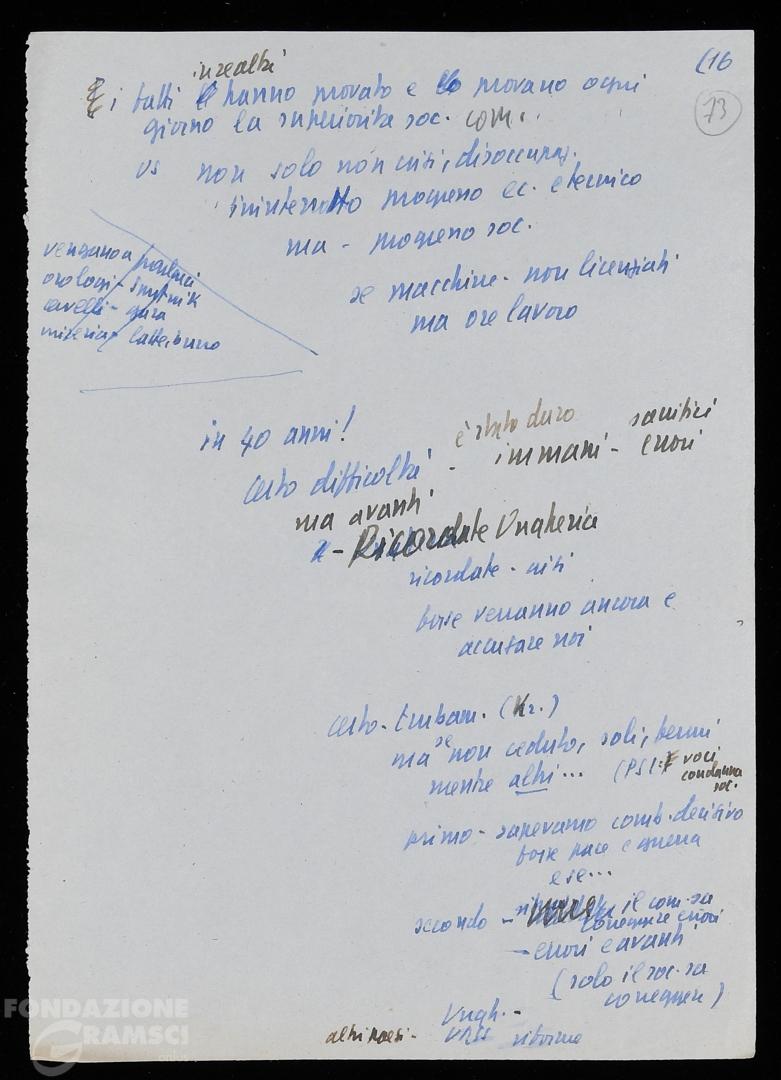 (16
73
in realtà
E i fatti hanno provato e lo provano ogni
giorno la superiorità soc. com..
vs non solo non crisi, disoccupaz.
ininterrotto progresso ec. e tecnico
ma - progresso soc.
se macchine - non licenziati
ma ore lavoro
vengano a
orologi - sputnik
cavalli - gara
miseria - latte, burro
in 40 anni!
è stato duro sacrifici
certo difficoltà - immani - errori
ma avanti
- Ricordate Ungheria
ricordate - crisi
forse verranno ancora e
accusare noi
certo - turbam. (Kr.)
ma se non ceduto, soli, fermi
mentre altri... (PSI: voci
condanna
soc.
primo - sapevamo comb. decisivo
forse pace e guerra
e se...
secondo - il com. sa
correggere errori
- errori e avanti
(solo il soc. sa
correggere)
Ungh. -
altri paesi - URSS riforme
FONDAZIONE
GRAMSCI
onlus